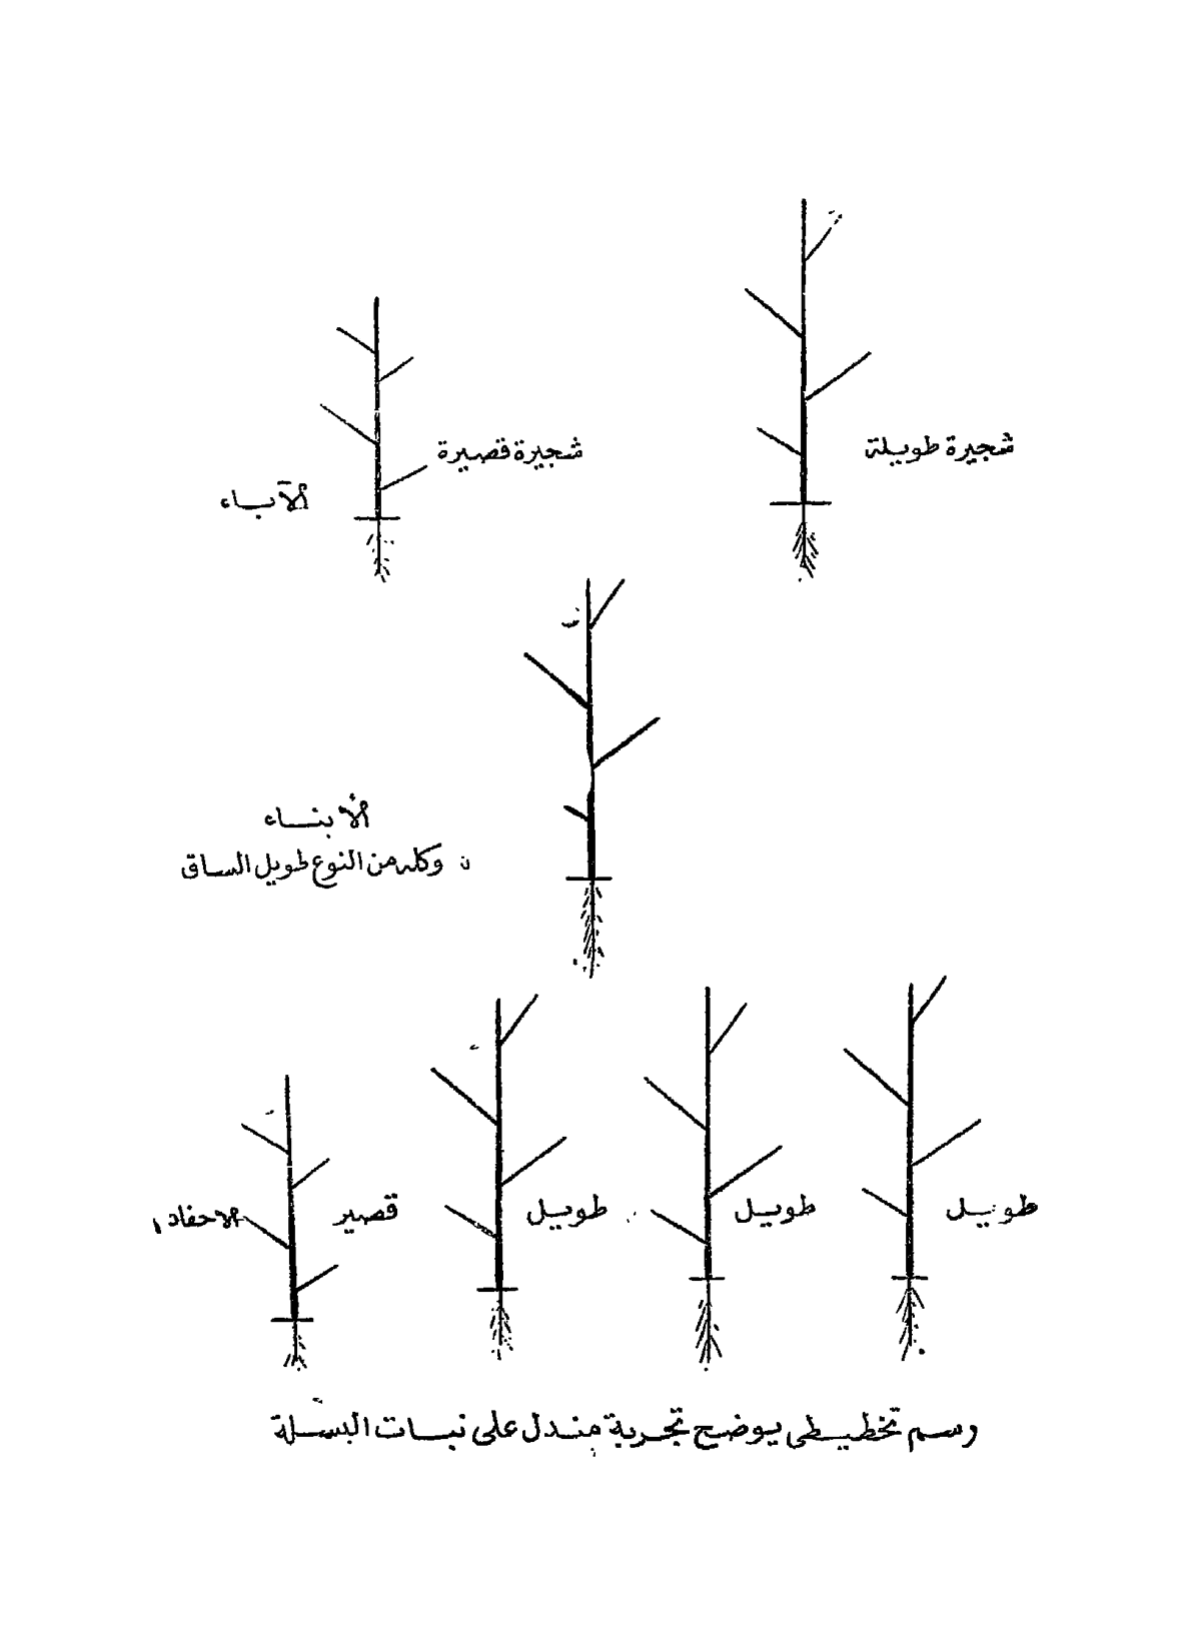 شجيرة طويلة
شجيرة قصيرة
الآباء
الأبناء
وكله من النوع طويل الساق
طويل
طويل
طويل
قصير
الاحفاد
وسم تخطيطى يوضح تجربة مندل على نبات البسلة